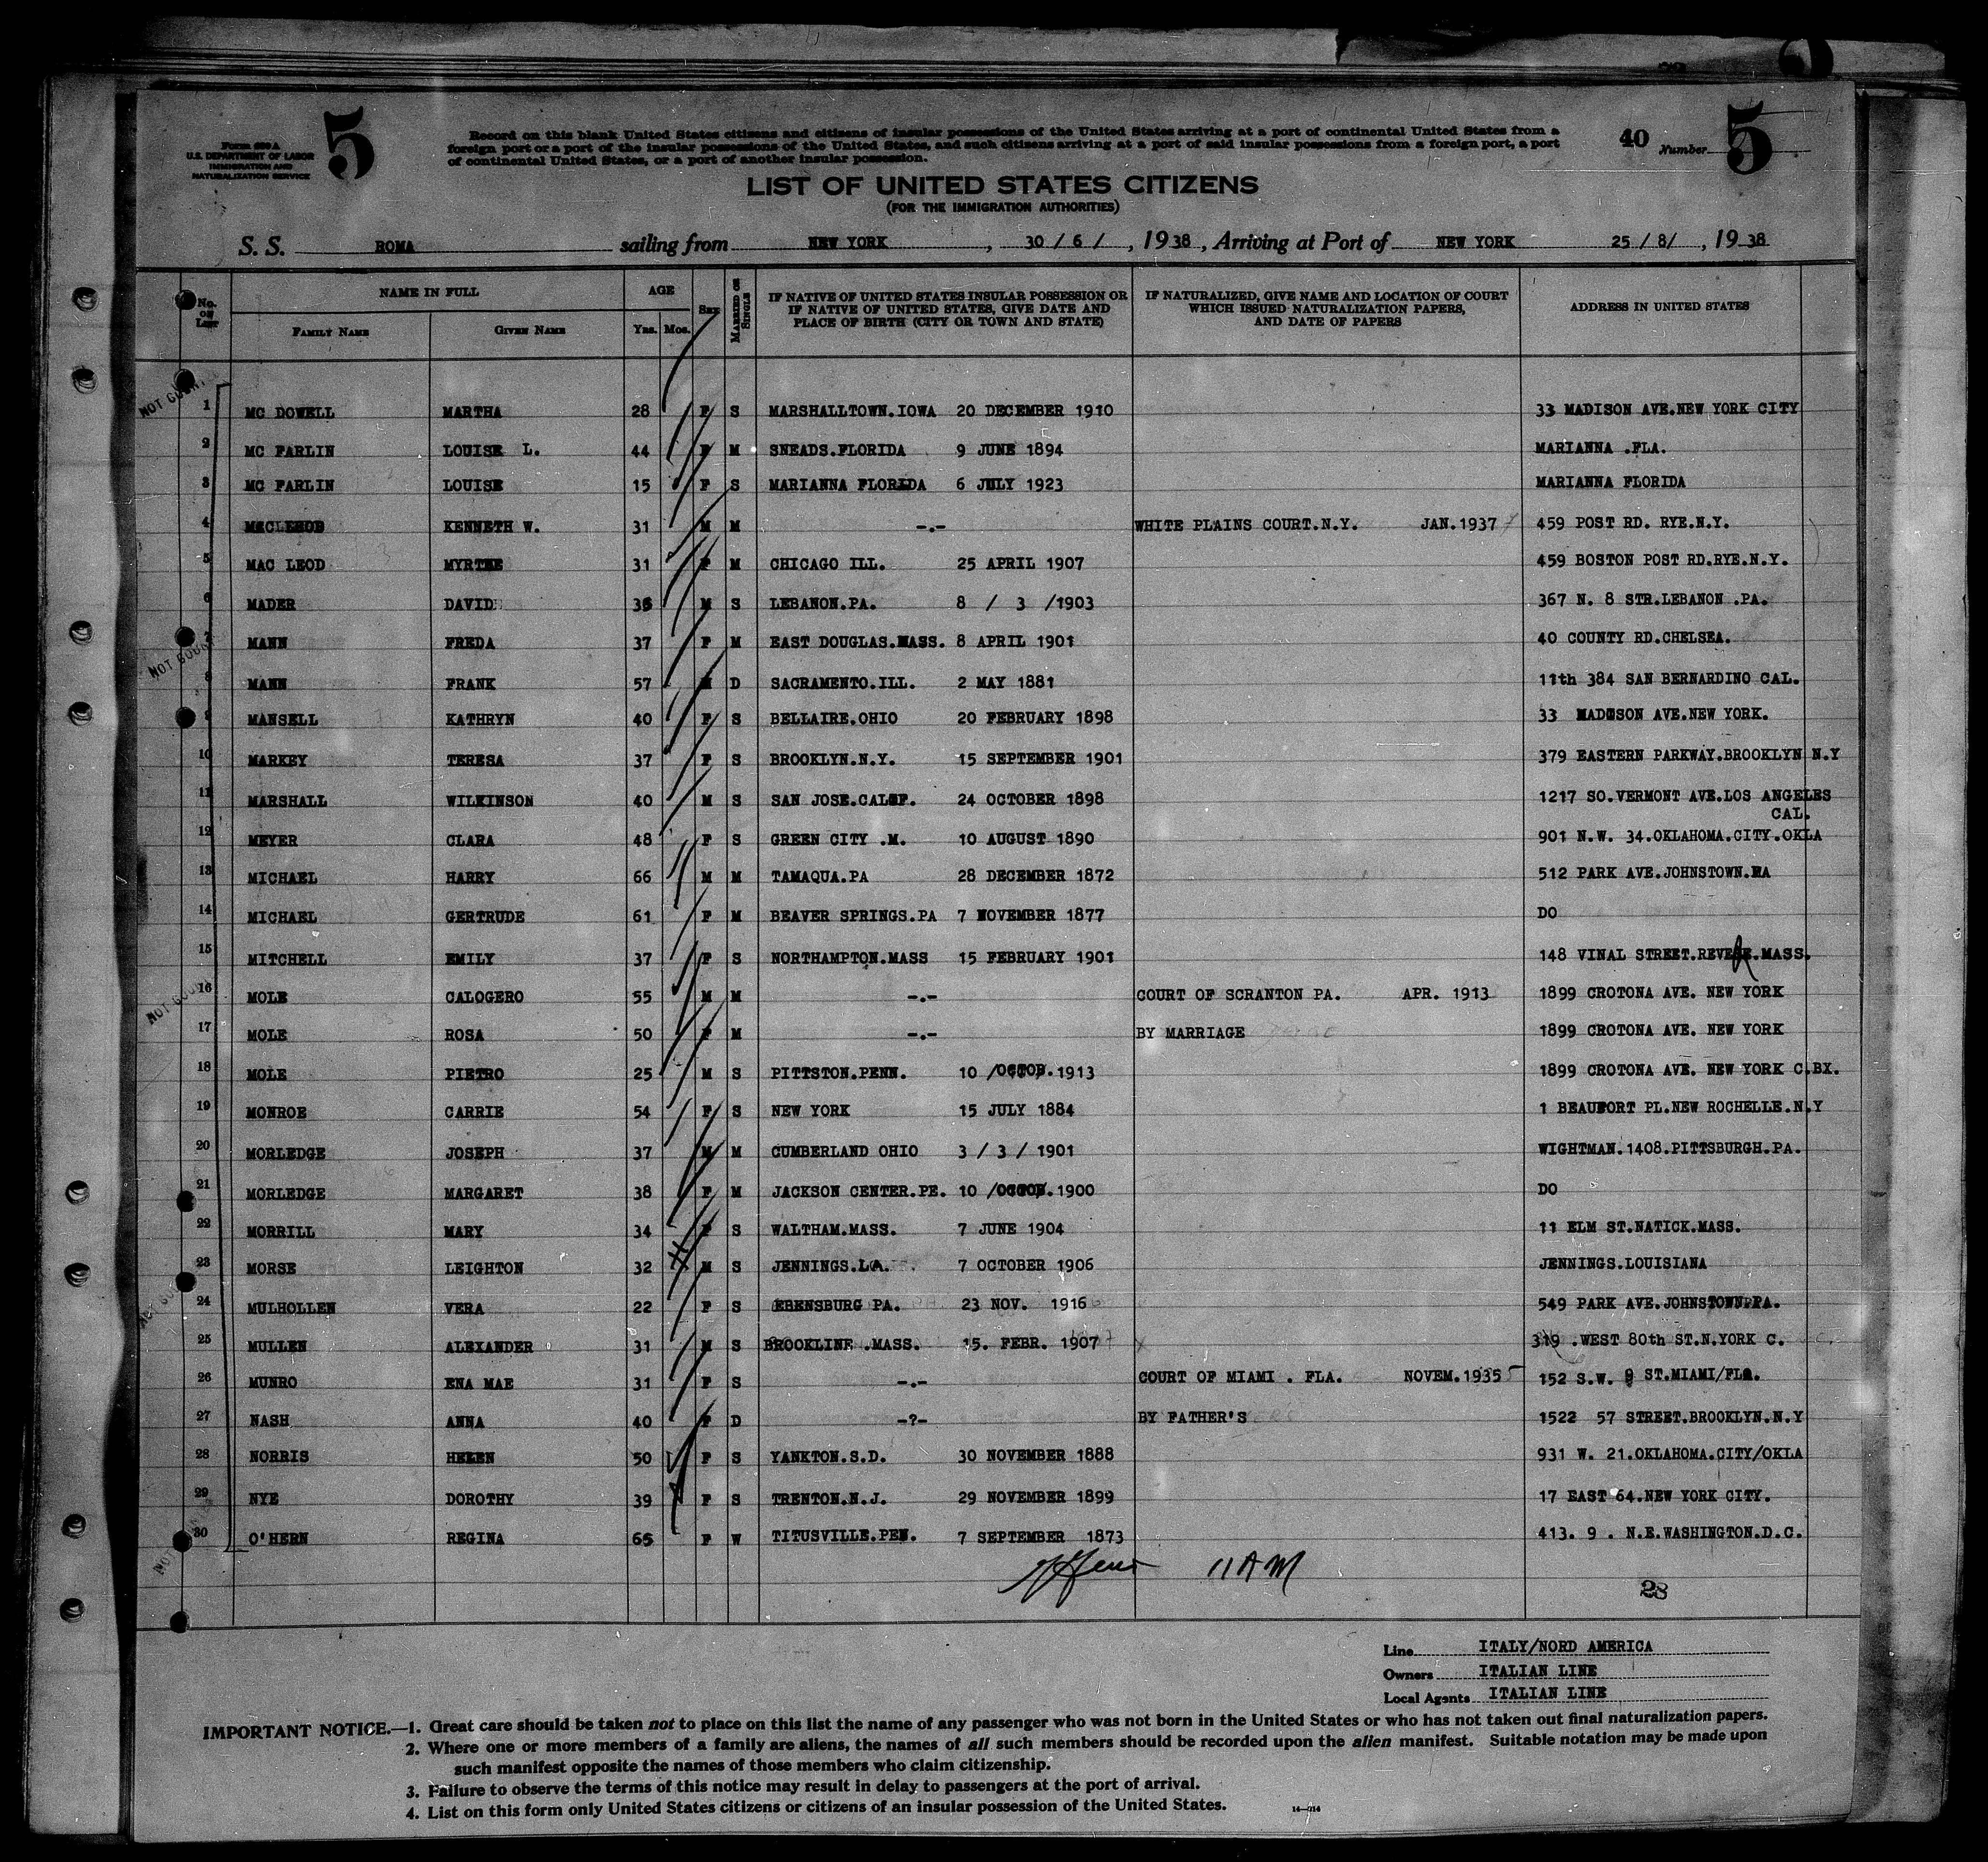 5
Form 630 A
U.S. DEPARTMENT OF LABOR
IMMIGRATION AND
NATURALIZATION SERVICE
5
Record on this blank United States citizens and citizens of insular possessions of the United States arriving at a port of continental United States from a
foreign port or a port of the insular possessions of the United States, and such citizens arriving at a port of said insular possessions from a foreign port, a port
of continental United States, or a port of another insular possession.
40 Number 5
LIST OF UNITED STATES CITIZENS
(FOR THE IMMIGRATION AUTHORITIES)
S. S. ROMA sailing from NEW YORK , 30 / 6 / , 1938 , Arriving at Port of NEW YORK 25 / 8/ , 19 38
No. on List NAME IN FULL AGE Sex Married or Single IF NATIVE OF UNITED STATES INSULAR POSSESSION OR IF NATIVE OF UNITED STATES, GIVE DATE AND PLACE OF BIRTH (CITY OR TOWN AND STATE) IF NATURALIZED, GIVE NAME AND LOCATION OF COURT WHICH ISSUED NATURALIZATION PAPERS, AND DATE OF PAPERS ADDRESS IN UNITED STATES
Family Name Given Name Yrs. Mos.
1 MC DOWELL MARTHA 28 F S MARSHALLTOWN.IOWA 20 DECEMBER 1910 33 MADISON AVE.NEW YORK CITY
2 MC FARLIN LOUISE L. 44 F M SNEADS.FLORIDA 9 JUNE 1894 MARIANNA .FLA.
3 MC FARLIN LOUISE 15 F S MARIANNA FLORIDA 6 JULY 1923 MARIANNA FLORIDA
4 MACLEOD KENNETH W. 31 M M -.- WHITE PLAINS COURT.N.Y. JAN.1937 459 POST RD. RYE.N.Y.
5 MAC LEOD MYRTLE 31 F M CHICAGO ILL. 25 APRIL 1907 459 BOSTON POST RD.RYE.N.Y.
6 MADER DAVID 35 M S LEBANON.PA. 8 / 3 /1903 367 N. 8 STR.LEBANON .PA.
7 MANN FREDA 37 F M EAST DOUGLAS.MASS. 8 APRIL 1901 40 COUNTY RD.CHELSEA.
8 MANN FRANK 57 M D SACRAMENTO.ILL. 2 MAY 1881 11th 384 SAN BERNARDINO CAL.
9 MANSELL KATHRYN 40 F S BELLAIRE.OHIO 20 FEBRUARY 1898 33 MADISON AVE.NEW YORK.
10 MARKEY TERESA 37 F S BROOKLYN.N.Y. 15 SEPTEMBER 1901 379 EASTERN PARKWAY.BROOKLYN N.Y
11 MARSHALL WILKINSON 40 M S SAN JOSE.CALIF. 24 OCTOBER 1898 1217 SO.VERMONT AVE.LOS ANGELES
CAL.
12 MEYER CLARA 48 F S GREEN CITY .M. 10 AUGUST 1890 901 N.W. 34.OKLAHOMA.CITY.OKLA
13 MICHAEL HARRY 66 M M TAMAQUA.PA 28 DECEMBER 1872 512 PARK AVE.JOHNSTOWN.PA
14 MICHAEL GERTRUDE 61 F M BEAVER SPRINGS.PA 7 NOVEMBER 1877 DO
15 MITCHELL EMILY 37 F S NORTHAMPTON.MASS 15 FEBRUARY 1901 148 VINAL STREET.REVERE.MASS.
16 MOLE CALOGERO 55 M M -.- COURT OF SCRANTON PA. APR. 1913 1899 CROTONA AVE. NEW YORK
17 MOLE ROSA 50 F M -.- BY MARRIAGE 1899 CROTONA AVE. NEW YORK
18 MOLE PIETRO 25 M S PITTSTON.PENN. 10 /OCTOB.1913 1899 CROTONA AVE. NEW YORK C.BX.
19 MONROE CARRIE 54 F S NEW YORK 15 JULY 1884 1 BEAUFORT PL.NEW ROCHELLE.N.Y
20 MORLEDGE JOSEPH 37 M M CUMBERLAND OHIO 3 / 3 / 1901 WIGHTMAN.1408.PITTSBURGH.PA.
21 MORLEDGE MARGARET 38 F M JACKSON CENTER.PE. 10 /OCTOB.1900 DO
22 MORRILL MARY 34 F S WALTHAM.MASS. 7 JUNE 1904 11 ELM ST.NATICK.MASS.
23 MORSE LEIGHTON 32 M S JENNINGS.LA. 7 OCTOBER 1906 JENNINGS.LOUISIANA
24 MULHOLLEN VERA 22 F S EBENSBURG PA. 23 NOV. 1916 549 PARK AVE.JOHNSTOWN.PA.
25 MULLEN ALEXANDER 31 M S BROOKLINE .MASS. 15. FEBR. 1907 319 .WEST 80th ST.N.YORK C.
26 MUNRO ENA MAE 31 F S -.- COURT OF MIAMI . FLA. NOVEM.1935 152 S.W. 9 ST.MIAMI/FLA.
27 NASH ANNA 40 F D -?- BY FATHER'S 1522 57 STREET.BROOKLYN.N.Y
28 NORRIS HELEN 50 F S YANKTON.S.D. 30 NOVEMBER 1888 931 W. 21.OKLAHOMA.CITY/OKLA
29 NYE DOROTHY 39 F S TRENTON.N.J. 29 NOVEMBER 1899 17 EAST 64.NEW YORK CITY.
30 O'HERN REGINA 65 F W TITUSVILLE.PEN. 7 SEPTEMBER 1873 413. 9 . N.E.WASHINGTON.D.C.
11 AM
28
Line ITALY/NORD AMERICA
Owners ITALIAN LINE
Local Agents ITALIAN LINE
IMPORTANT NOTICE.—1. Great care should be taken not to place on this list the name of any passenger who was not born in the United States or who has not taken out final naturalization papers.
2. Where one or more members of a family are aliens, the names of all such members should be recorded upon the alien manifest. Suitable notation may be made upon
such manifest opposite the names of those members who claim citizenship.
3. Failure to observe the terms of this notice may result in delay to passengers at the port of arrival.
4. List on this form only United States citizens or citizens of an insular possession of the United States.
14—914